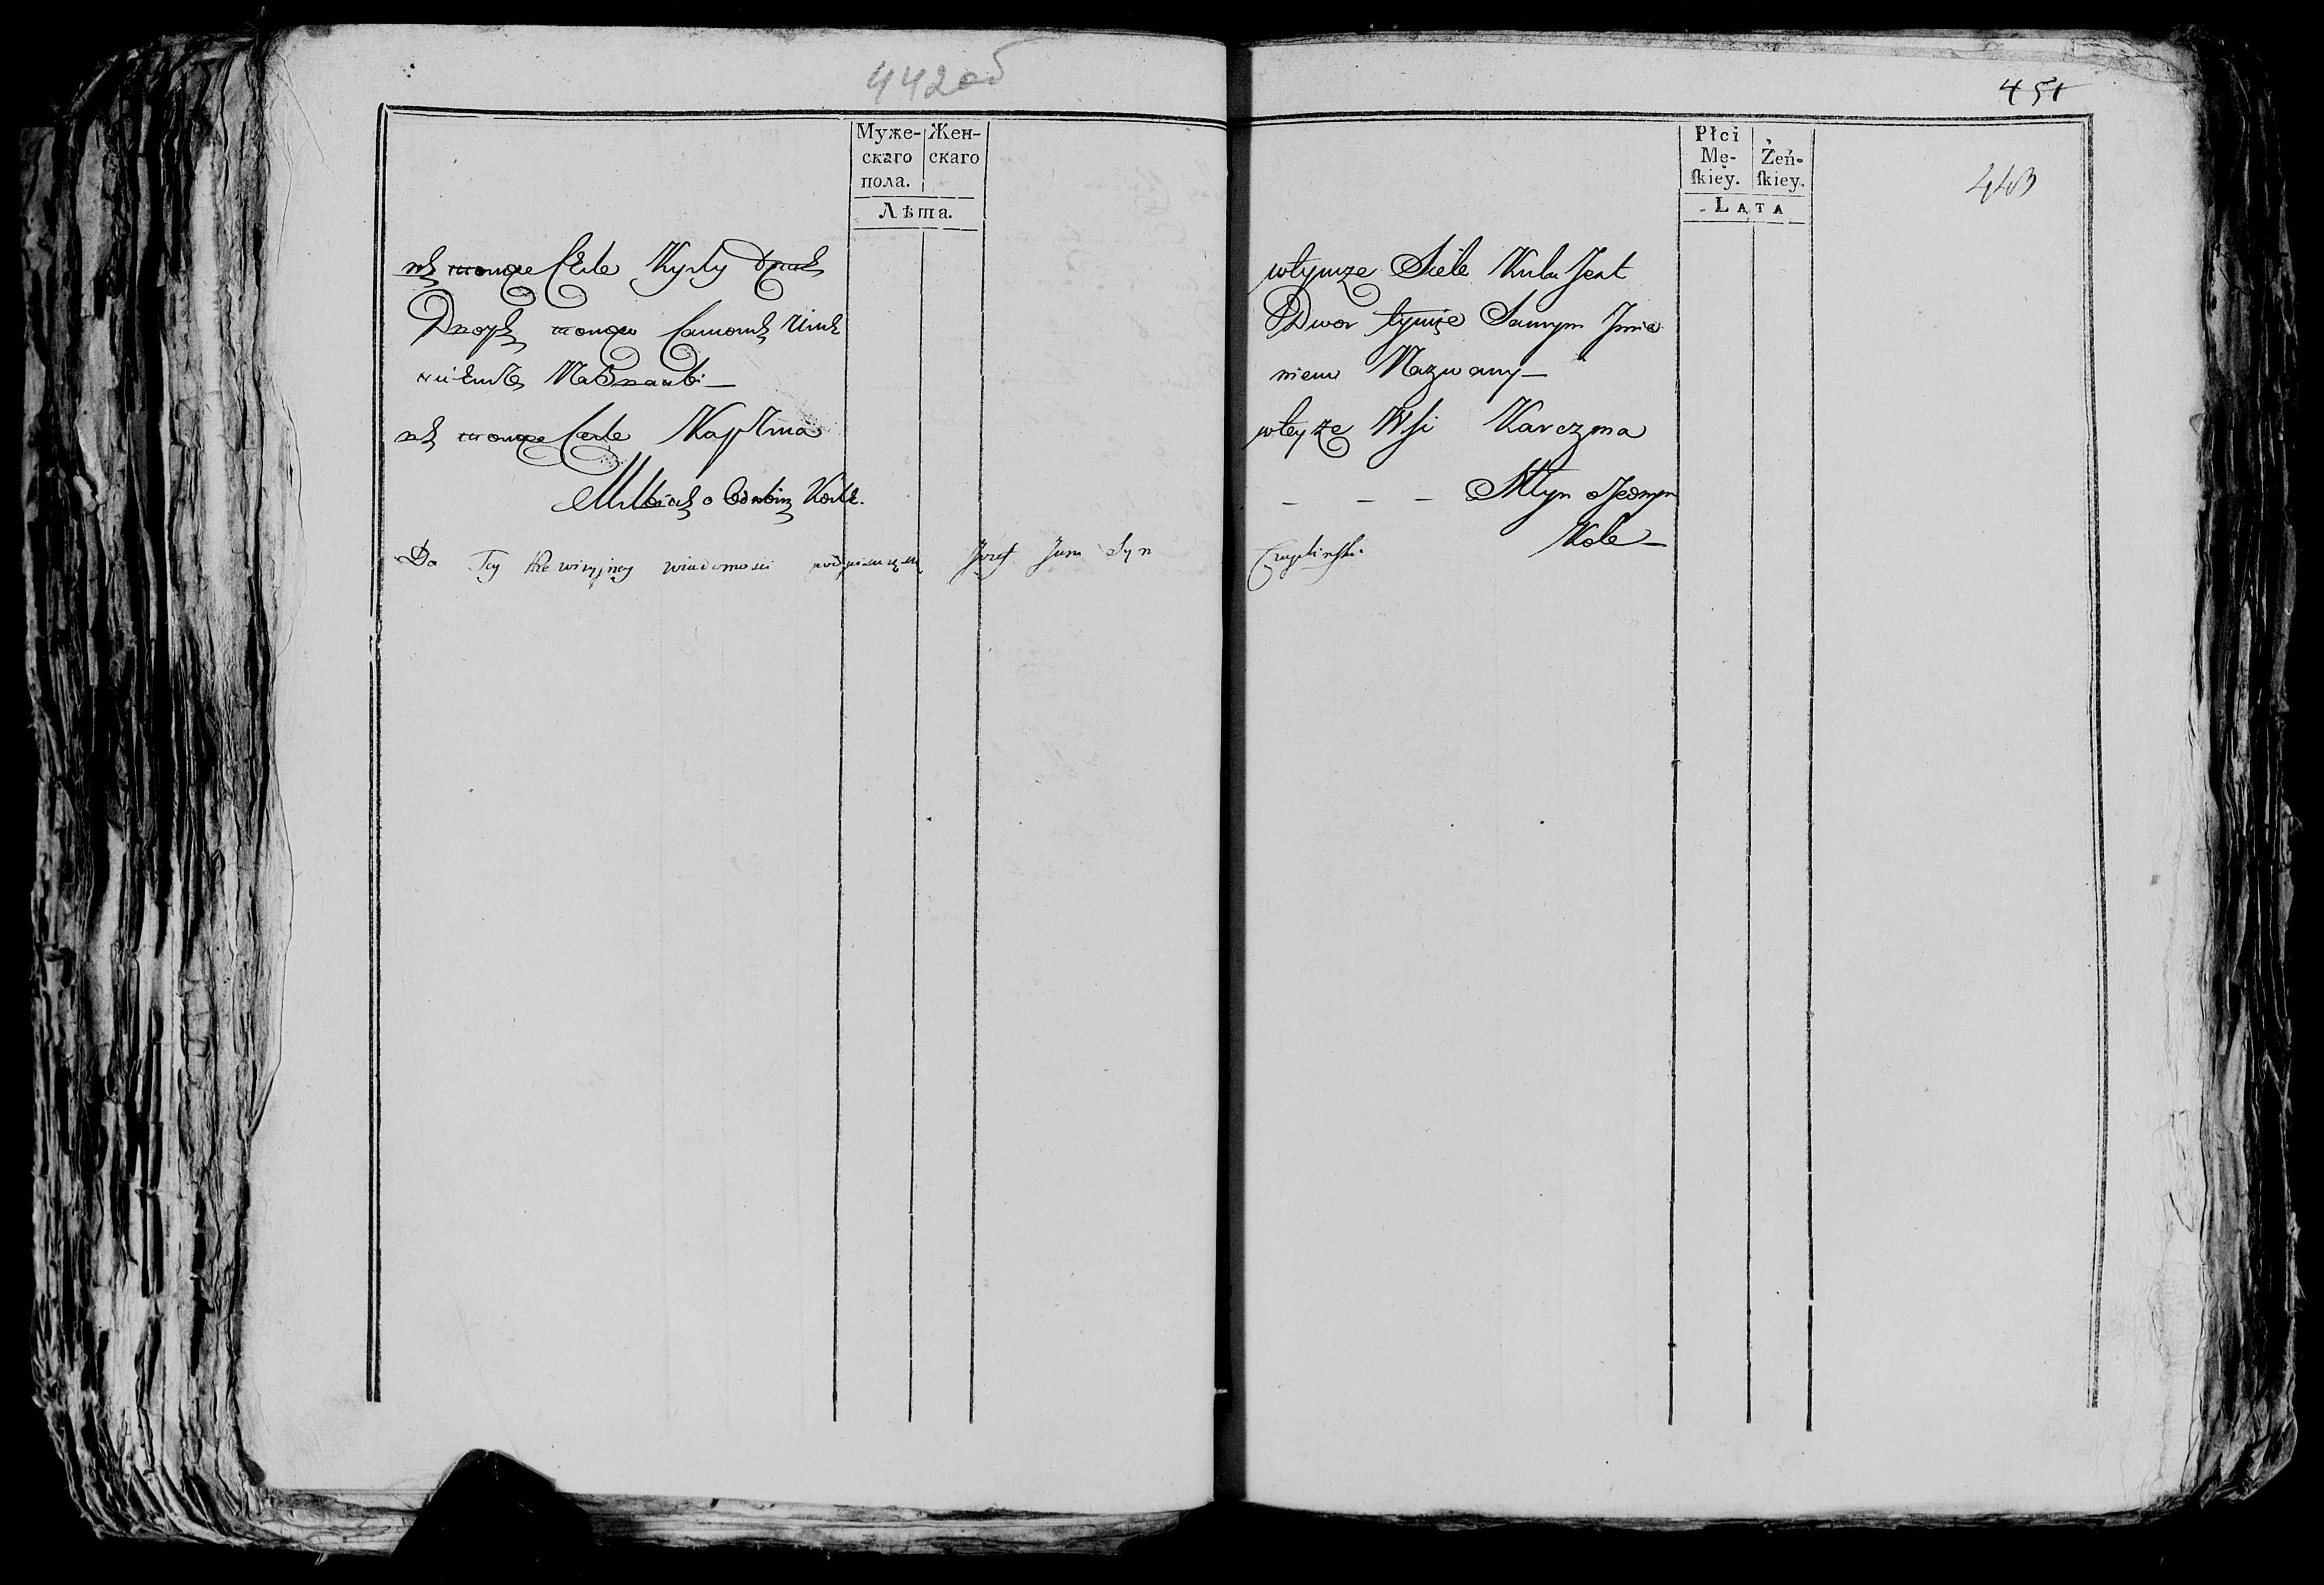 442об
Муже-
скаго
пола.
Жен-
скаго
Лѣта.
въ томже Селѣ
Дворъ темже Самомъ Име
ниемъ Названъ
въ томже Селѣ Карчма
Млинъ о Одномъ Колѣ.
Do Tey Rewizyjney wiadomości podpisuię się Jozef Jana Syn
Czaplinski
451
443
Płci
Mę-
ſkiey.
Żeń-
ſkiey.
LATA
wtymże Siele Jest
Dwor tymże Samym Jmie
niem Nazwany —
wteyże Wsi Karczma
— — — Młyn oJednym
Kole —